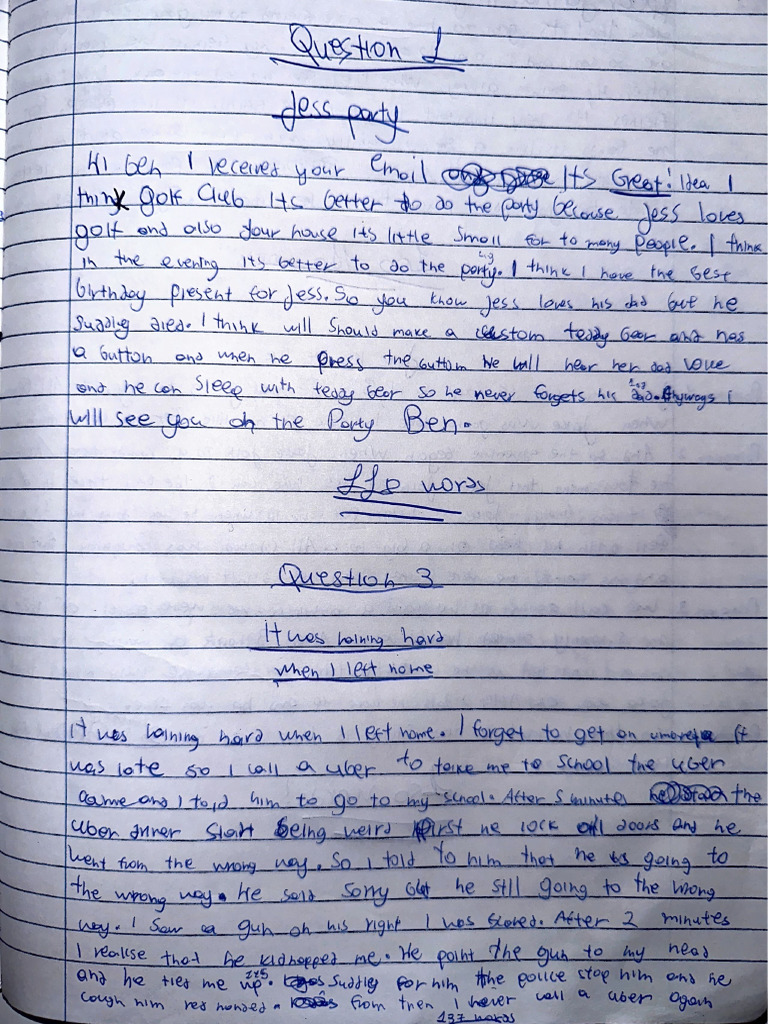 Question 1
Jess party
Hi Ben I received your email Its Great! Idea I
think golf Club Its better to do the party because Jess loves
golf and also your house its little small for to many people. I think
in the evening its better to do the party. I think I have the best
birthday present for Jess. So you know Jess loves his dad but he
suddlig died. I think will should make a custom teddy bear and has
a button and when he press the button he will hear her dad voice
and he can sleep with teddy bear so he never forgets his dad. Anyways I
will see you on the Party Ben.
118 words
Question 3
It was raining hard
when I left home
It was raining hard when I left home. I forget to get an It
was late so I call a uber to take me to school the uber
came and I told him to go to my school. After 5 minutes the
uber driver start being weird first he lock all doors and he
went from the wrong way. So I told to him that he is going to
the wrong way. He said sorry but he still going to the wrong
way. I saw a gun on his right I was scared. After 2 minutes
I realise that he kidnapped me. He point the gun to my head
and he tied me up. suddlig for him the police stop him and he
cough him red handed. from then I never call a uber again
137 words